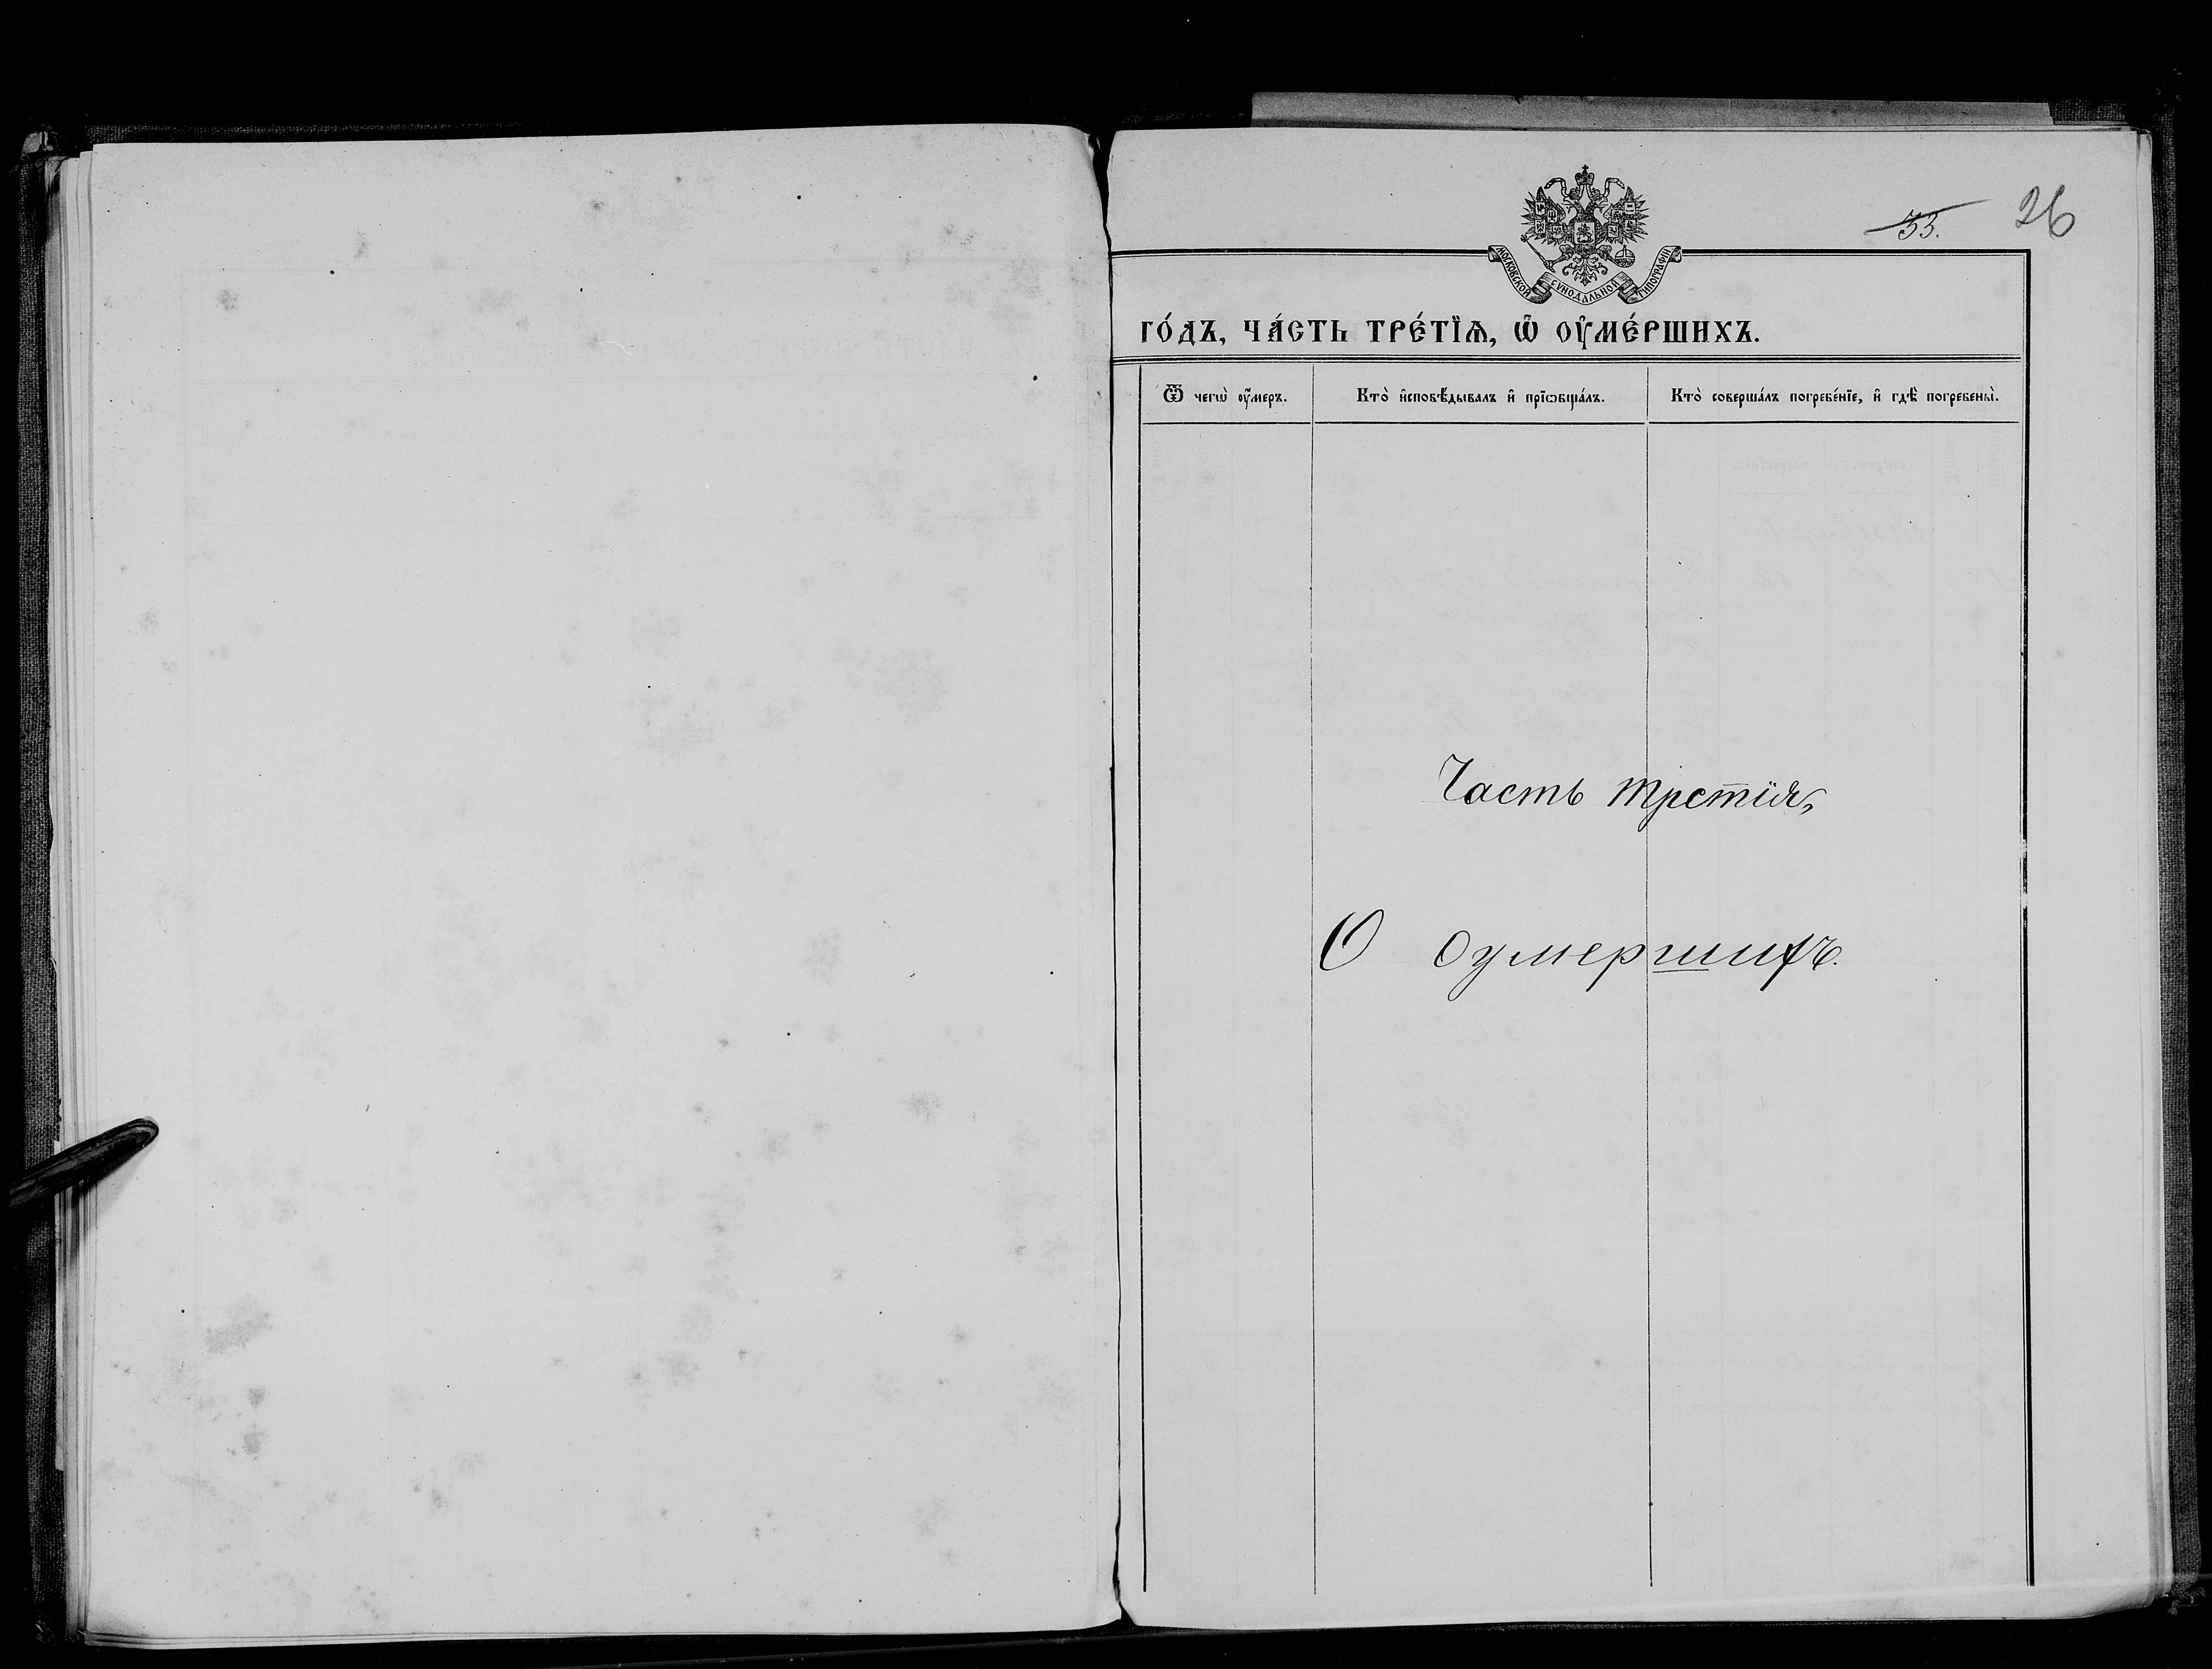 33. 26
МОСКОВСКОЙ СѴНОДАЛЬНОЙ ТИПОГРАФІИ
ГО́ДЪ, ЧА́СТЬ ТРЕ́ТЇѦ, Ѡ҆ ОУ҆МЕ́РШИХЪ.
Ѿ чегѡ̀ оу҆́меръ. Кто̀ и҆сповѣ́дывалъ и҆ прїѡбща́лъ. Кто̀ соверша́лъ погребе́нїе, и҆ гдѣ̀ погребены̀.
Часть третія,
О оумершихъ.